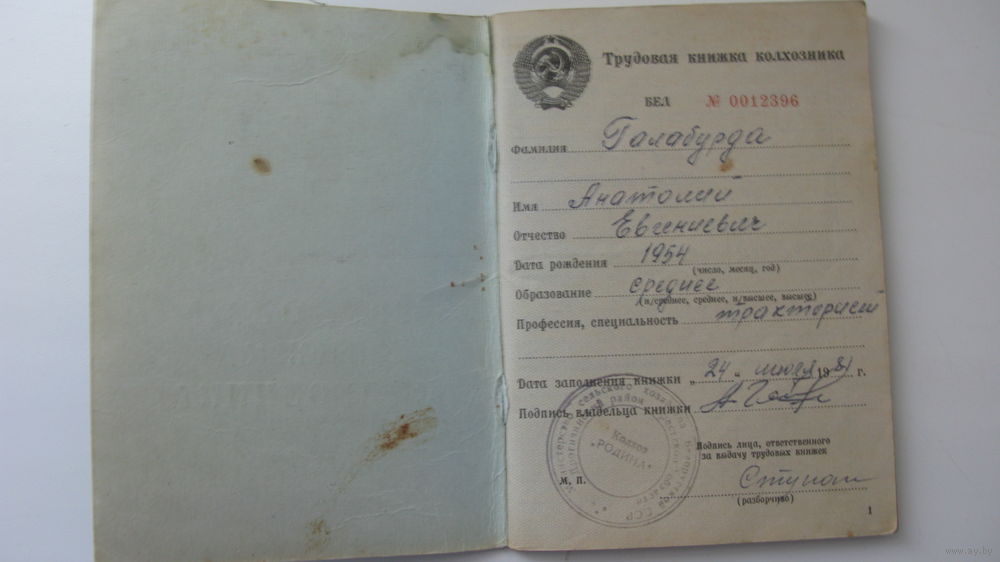 Трудовая книжка колхозника
БЕЛ № 0012396
Фамилия Галабурда
Имя Анатолий
Отчество Евгениевич
Дата рождения 1954
(число, месяц, год)
Образование среднее
(н/среднее, среднее, н/высшее, высшее)
Профессия, специальность тракторист
Дата заполнения книжки „ 24 „ июля 1981 г.
Подпись владельца книжки
Подпись лица, ответственного
за выдачу трудовых книжек
Колхоз
"РОДИНА"
М. П.
(разборчиво)
1
www.ay.by